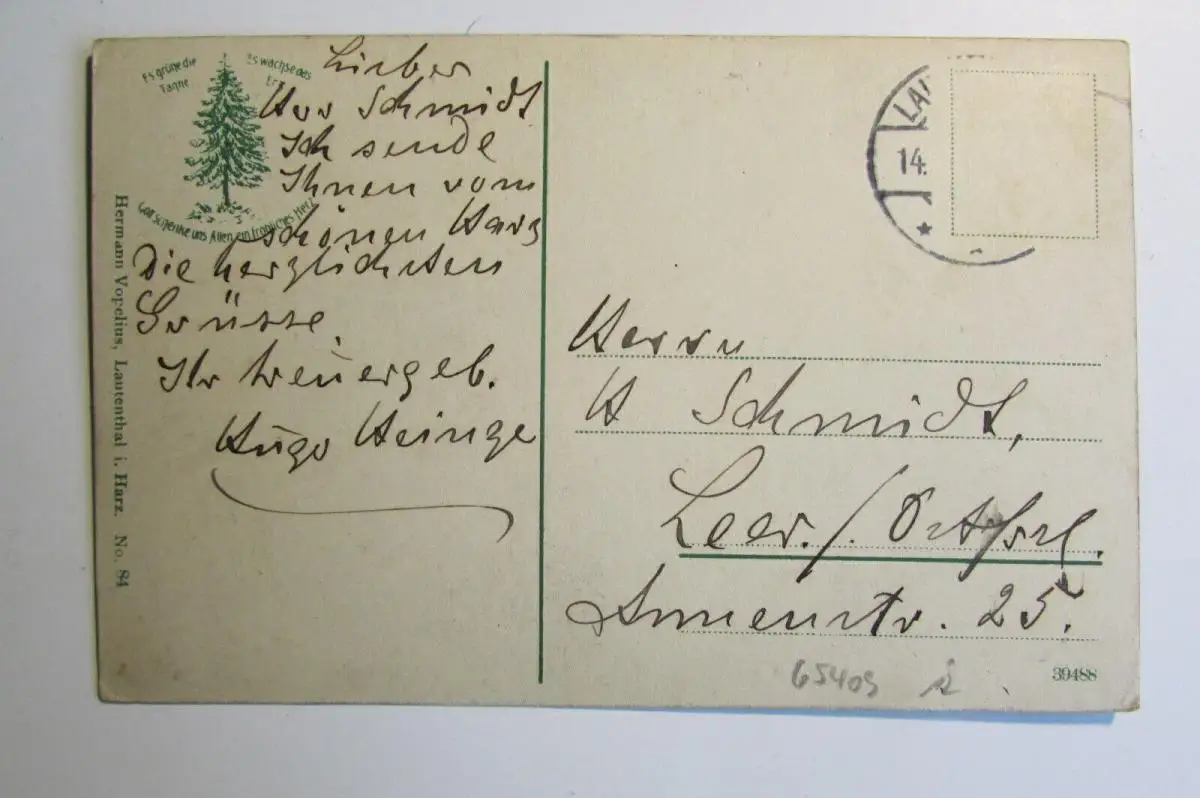 Es grüne die
Tanne
Es wachse das
Er
Gott schenke uns Allen ein fröhliches Herz
Lieber
Herr Schmidt
Ich sende
Ihnen vom
schönen Harz
Die herzlichsten
Grüsse.
Ihr treuergeb.
Hugo Heinge
Hermann Vopelius, Lautenthal i. Harz. No. 84
LA
14.
Herrn
H Schmidt,
Leer. /. Ostfrsl.
Annenstr. 25.
65409
39488